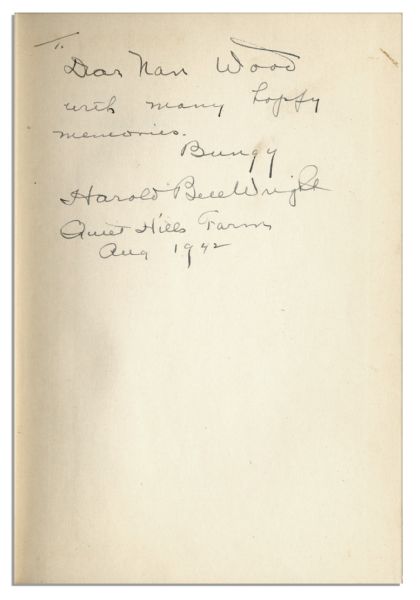 To
Dear Nan Wood
with many happy
memories.
Bungy
Harold Bell Wright
Quiet Hills Farm
Aug 1942